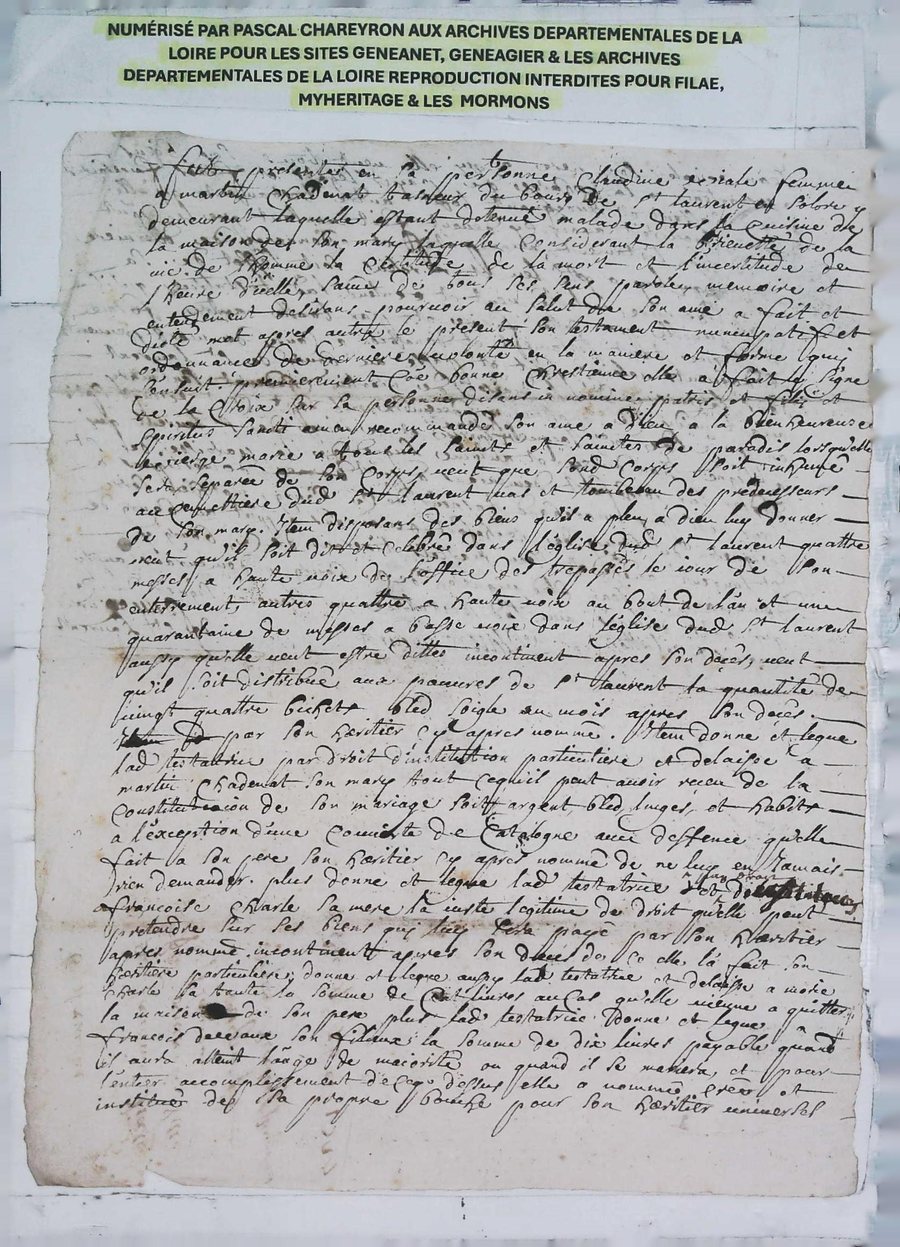 NUMÉRISÉ PAR PASCAL CHAREYRON AUX ARCHIVES DEPARTEMENTALES DE LA
LOIRE POUR LES SITES GENEANET, GENEAGIER & LES ARCHIVES
DEPARTEMENTALES DE LA LOIRE REPRODUCTION INTERDITES POUR FILAE,
MYHERITAGE & LES MORMONS
fut presentes en sa personne Claudine femme
a martin Chadenat du bourg de St laurent en Solore y
demeurant laquelle estant detenue malade dans la cuisine de
la maison de son mary laquelle Considerant la brieueté de la
vie de l'homme la Certitude de la mort et l'incertitude de
l'heure d'icelle, saine de tous ses sens parole, memoire et
entendement desirant pourvoir au salut de son ame a fait et
dicté mot apres autre le present son testament nuncupatif et
ordonnance de derniere volonté en la maniere et forme qui
sensuit. premierement Coe bonne Chrestienne elle a fait le signe
de la Croix sur sa personne disant in nomine patris et filii et
spiritus Sancti amen recommandé son ame a Dieu, a la bienheureuse
vierge marie a tous les saints et saintes de paradis lorsqu'elle
sera separée de son Corps, veut que sond Corps soit inhumé
au cemettiere dud St laurent vas et tombeau des predecesseurs
de son mary. Item disposant des biens qu'il a pleu a dieu luy donner
veut qu'il soit dit et celebré dans l'eglise dud St laurent quattre
messes a haute voix de l'office des trepassés le iour de son
enterrement, autres quattre a haute voix au bout de l'an et une
quarantaine de messes a basse voix dans l'eglise dud St laurent
aussy qu'elle veut estre dittes incontinent apres son decés, veut
qu'il soit distribué aux pauures de St laurent la quantité de
vingt quattre bichets bled soigle un mois apres son decés.
par son heritier cy apres nommé. Item donne et legue
lad testatrice par droit d'institution particuliere et delaisse a
martin Chadenat son mary tout cequ'il peut auoir receu de la
Constitution de son mariage soit argent, bled, linges, et habits
a l'exception d'une Couuerte de Catalogne auec deffence qu'elle
fait a son pere son heritier cy apres nommé de ne luy en jamais
rien demander. plus donne et legue lad testatrice et
a francoise Charle sa mere la iuste legitime de droit qu'elle peut
pretendre sur ses biens qui luy sera payé par son heritier
apres nommé incontinent apres son decés de ce elle la fait son
heritiere particuliere, donne et legue aussy lad testatrice et delaisse a marie
Charle sa tante la somme de Cent liures au Cas qu'elle vienne a quitter
la maison de son pere plus lad testatrice donne et legue
francois deveaux son filieux la somme de dix liures payable quand
il aura atteint l'aage de maiorité ou quand il se mariera, et pour
l'entier accomplissement de ceq dessus elle a nommé créé et
institué de sa propre bouche pour son heritier uniuersel